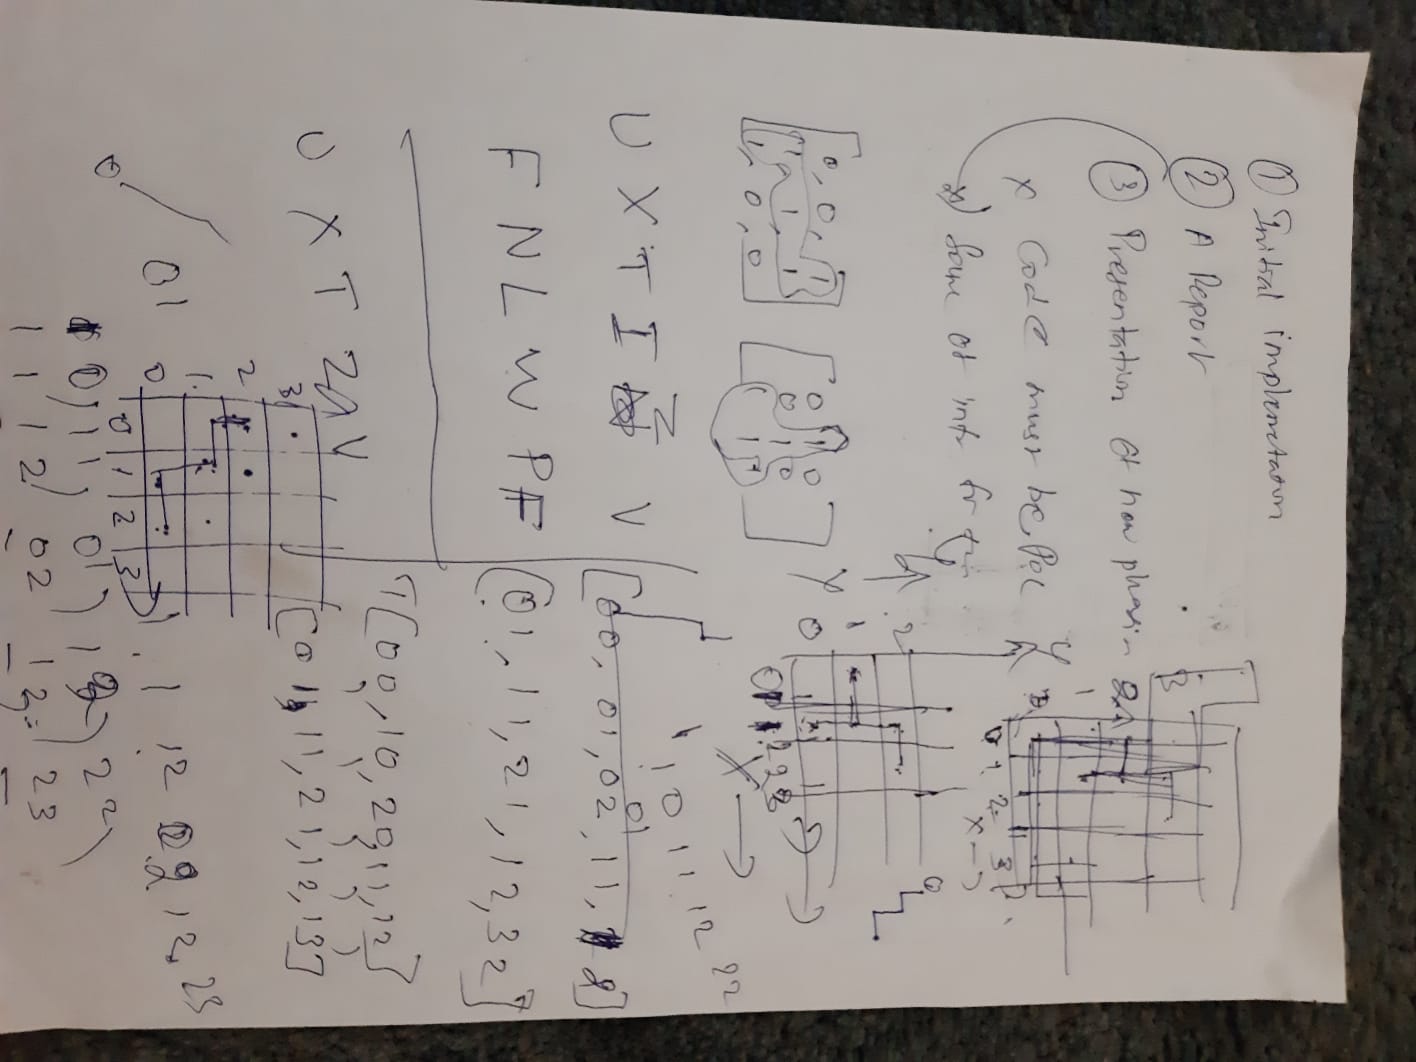 ① Initial implemetation
② A Report
③ Presentation of how
x Code must be Poc
x) Same of info for
3
2
1
0 1 2 3
X →
Y
2
1
0
X →
[0, 0, 1
1, 1, 1
1, 0, 0]
[0 1 0
0 1 0
1 1]
U X T I Z V
F N L W P F
10 11 12 22
01
[00, 01, 02, 11, 2]
[01, 11, 21, 12, 32]
T[00, 10, 20, 11, 12]
[01, 11, 21, 12, 13]
U X T Z V
3
2
1
0
0 1 2 3
01
12 12 23
10, 11, 01, 12, 22
11 12 02 12 23